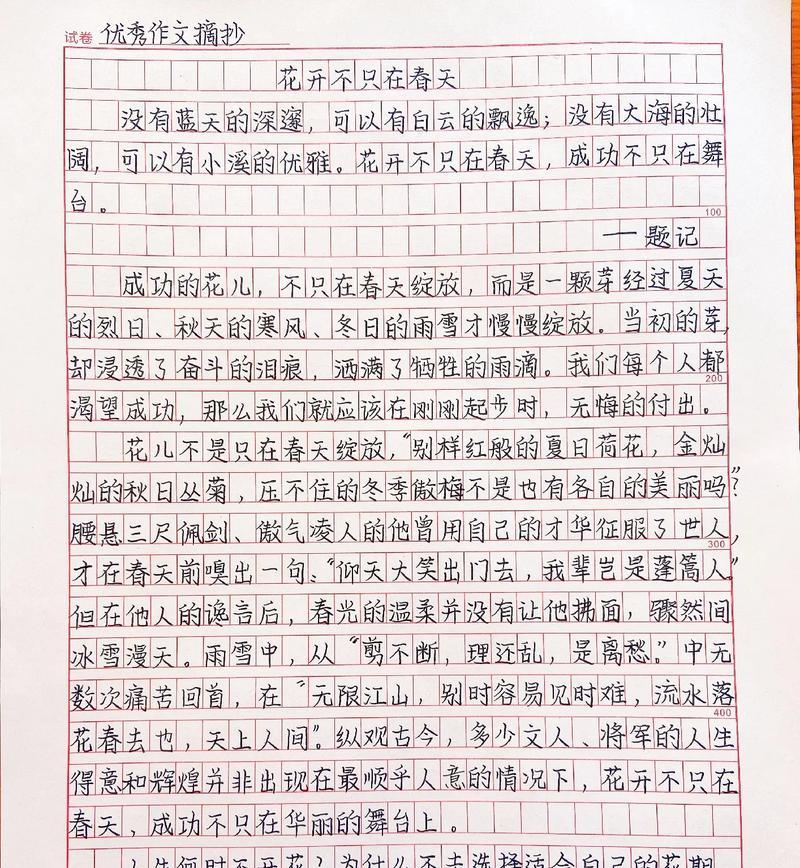 试卷 优秀作文摘抄
花开不只在春天
没有蓝天的深邃，可以有白云的飘逸；没有大海的壮
阔，可以有小溪的优雅。花开不只在春天，成功不只在舞
台。
100
——题记
成功的花儿，不只在春天绽放，而是一颗芽经过夏天
的烈日、秋天的寒风、冬日的雨雪才慢慢绽放。当初的芽，
却浸透了奋斗的泪痕，洒满了牺牲的雨滴。我们每个人都
200
渴望成功，那么我们就应该在刚刚起步时，无悔的付出。
花儿不是只在春天绽放，“别样红般的夏日荷花，金灿
灿的秋日丛菊，压不住的冬季傲梅不是也有各自的美丽吗”？
腰悬三尺佩剑、傲气凌人的他曾用自己的才华征服了世人，
300
才在春天前嗅出一句：“仰天大笑出门去，我辈岂是蓬篙人”
但在他人的谗言后，春光的温柔并没有让他拂面，骤然间
冰雪漫天。雨雪中，从“剪不断，理还乱，是离愁。”中无
数次痛苦回首，在“无限江山，别时容易见时难，流水落
400
花春去也，天上人间”。纵观古今，多少文人、将军的人生
得意和辉煌并非出现在最顺乎人意的情况下，花开不只在
春天，成功不只在华丽的舞台上。
人生何时不开花？为什么不去选择适合自己的花期